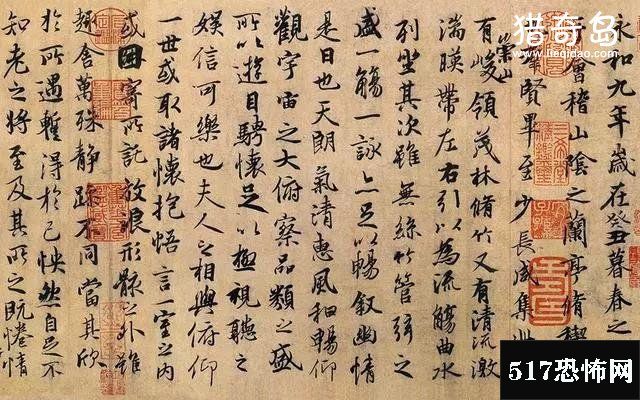 猎奇岛
永和九年歲在癸丑暮春之
會稽山陰之蘭亭脩稧
羣賢畢至少長咸集此
崇山
有峻領茂林脩竹又有清流激
湍暎帶左右引以為流觴曲水
列坐其次雖無絲竹管弦之
盛一觴一詠亦足以暢敘幽情
是日也天朗氣清惠風和暢仰
觀宇宙之大俯察品類之盛
所以遊目騁懷足以極視聽之
娛信可樂也夫人之相與俯仰
一世或取諸懷抱悟言一室之內
或因寄所託放浪形骸之外雖
趣舍萬殊靜躁不同當其欣
於所遇蹔得於己怏然自足不
知老之將至及其所之既惓情
517恐怖网